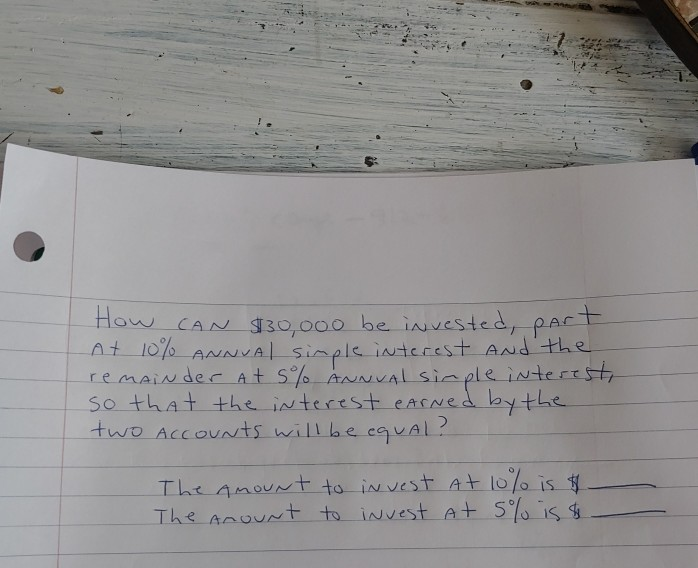 How CAN $30,000 be invested, part
At 10% ANNUAl simple interest AND the
remAiNder At 5% ANNUAl simple interest,
so thAt the interest eArNed by the
two AccouNts will be equAl?
The AmouNt to iNvest At 10% is $ ____
The AmouNt to iNvest At 5% is $ ____